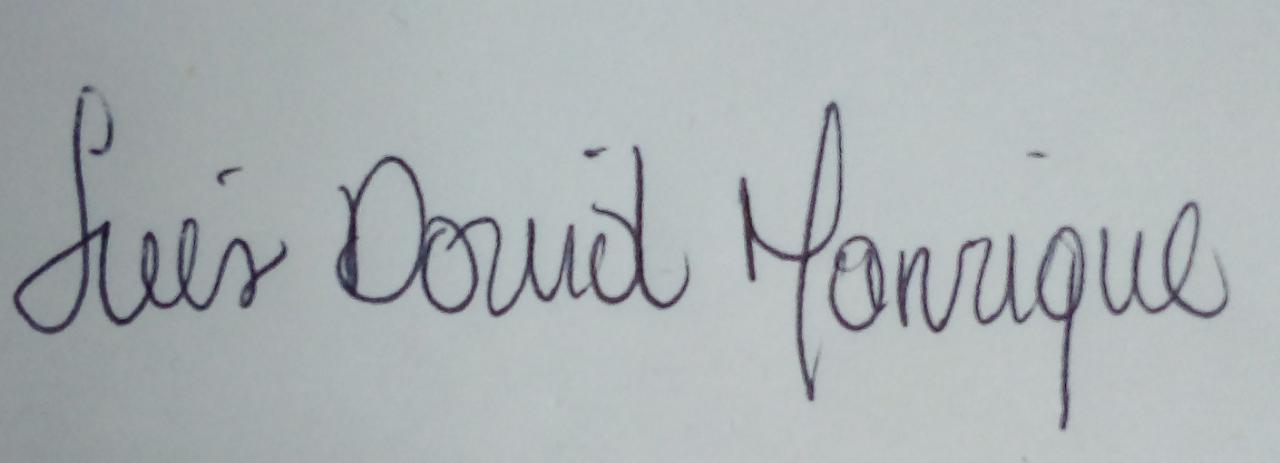 Luis David Manrique